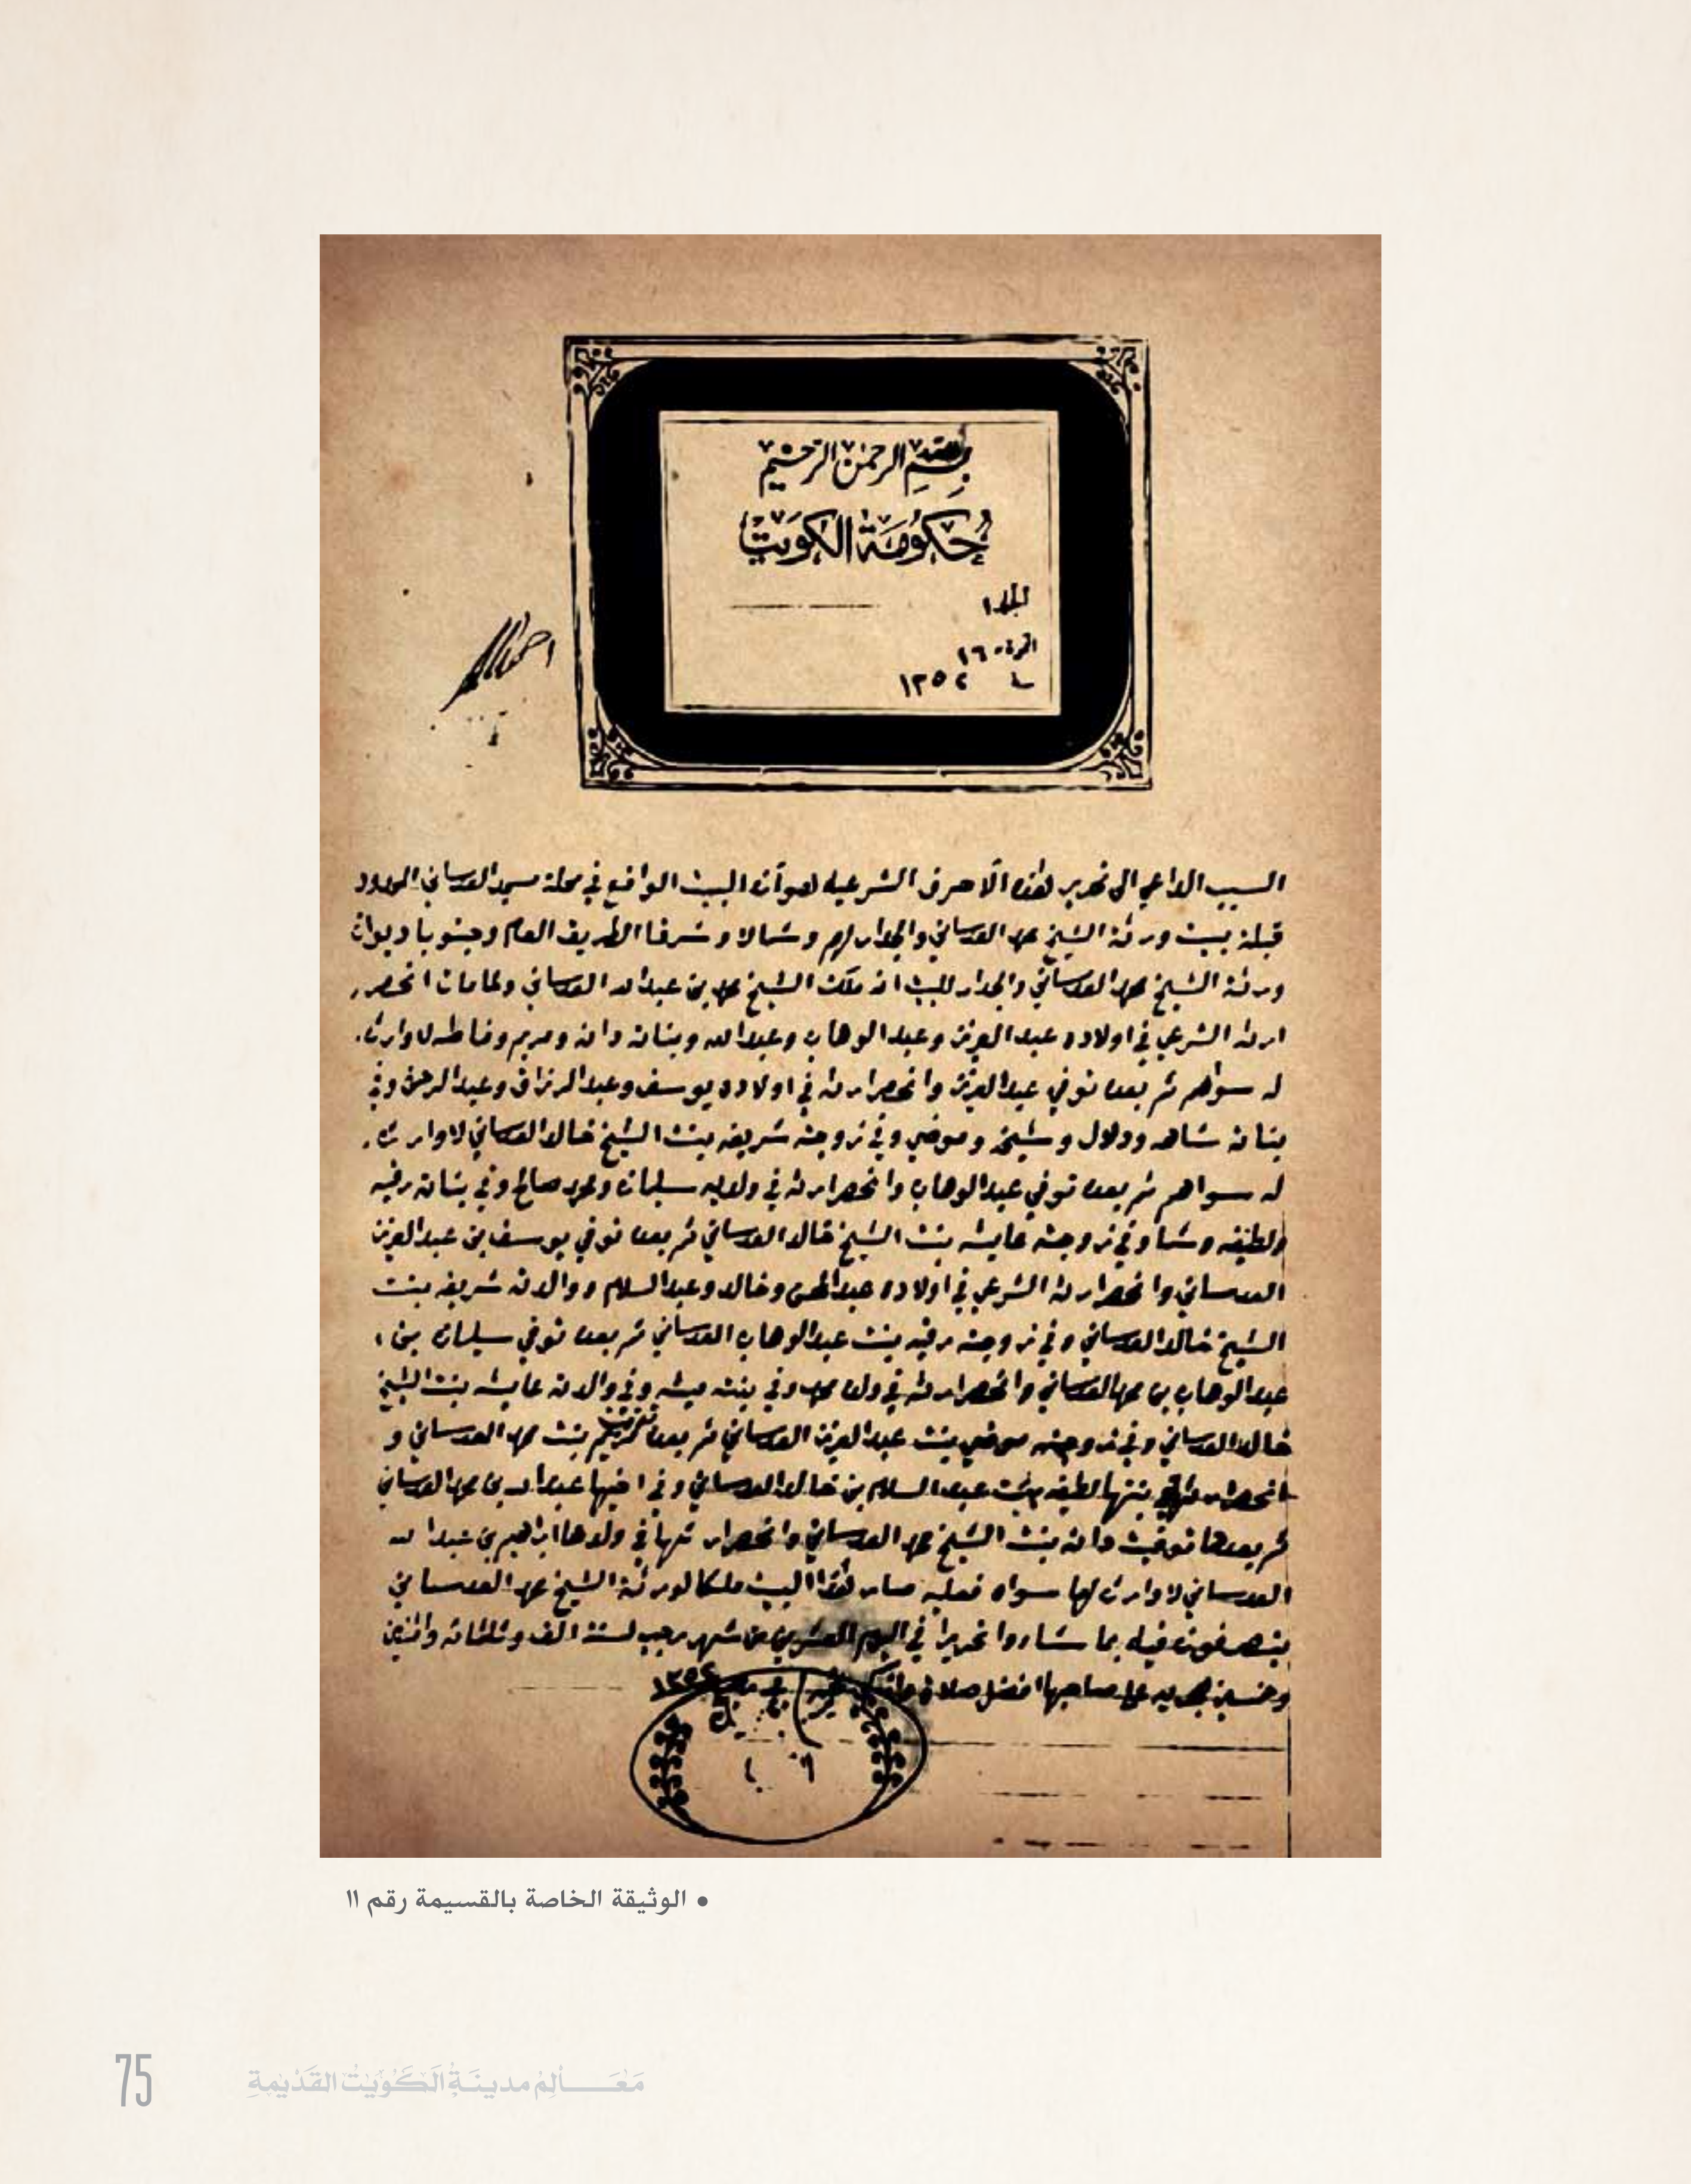 بسم الله الرحمن الرحيم
حكومة الكويت
المجلد ١
١٦
١٣٥٢
السبب الداعي الى تحرير هذه الاحرف الشرعيه هو أن البيت الواقع في محلة مسجد العدساني المحدود
قبلة بيت ورثة الشيخ محمد العدساني والجدار لهم وشمالا وشرقا الطريق العام وجنوبا ديوان
ورثة الشيخ محمد العدساني والجدار للبيت انه ملك الشيخ محمد بن عبد الله العدساني ولما مات انحصر
ارثه الشرعي في اولاده عبد العزيز وعبد الوهاب وعبد الله وبناته دانه ومريم وفاطمه لا وارث
له سواهم ثم بعده توفي عبد العزيز وانحصر ارثه في اولاده يوسف وعبد الرزاق وعبد الرحمن وفي
بناته شاهه ودلال وشيخه وموضي وفي زوجته شريفه بنت الشيخ خالد العدساني لا وارث
له سواهم ثم بعده توفي عبد الوهاب وانحصر ارثه في ولديه سليمان ومحمد صالح وفي بناته رقيه
ولطيفه وشما وفي زوجته عايشه بنت الشيخ خالد العدساني ثم بعده توفي يوسف بن عبد العزيز
العدساني وانحصر ارثه الشرعي في اولاده عبد المحسن وخالد وعبد السلام ووالدته شريفه بنت
الشيخ خالد العدساني وفي زوجته رقيه بنت عبد الوهاب العدساني ثم بعده توفي سليمان بن
عبد الوهاب بن محمد العدساني وانحصر ارثه في ولده محمد وفي بنته ميثه وفي والدته عايشه بنت الشيخ
خالد العدساني وفي زوجته موضي بنت عبد العزيز العدساني ثم بعده توفيت مريم بنت محمد العدساني و
انحصر ارثها في بنتها لطيفه بنت عبد السلام بن خالد العدساني وفي اخيها عبد الله بن محمد العدساني
ثم بعدها توفيت دانه بنت الشيخ محمد العدساني وانحصر ارثها في ولدها ابراهيم بن عبد الله
العدساني لا وارث لها سواه فعليه صار هذا البيت ملكا لورثة الشيخ محمد العدساني
يتصرفون فيه بما شاءوا تحريرا في اليوم العشرين من شهر رجب لسنة الف وثلثمائه واثنين
وخمسين هجريه على صاحبها افضل صلاة ١٣٥٢
• الوثيقة الخاصة بالقسيمة رقم ١١
75 معالم مدينة الكويت القديمة